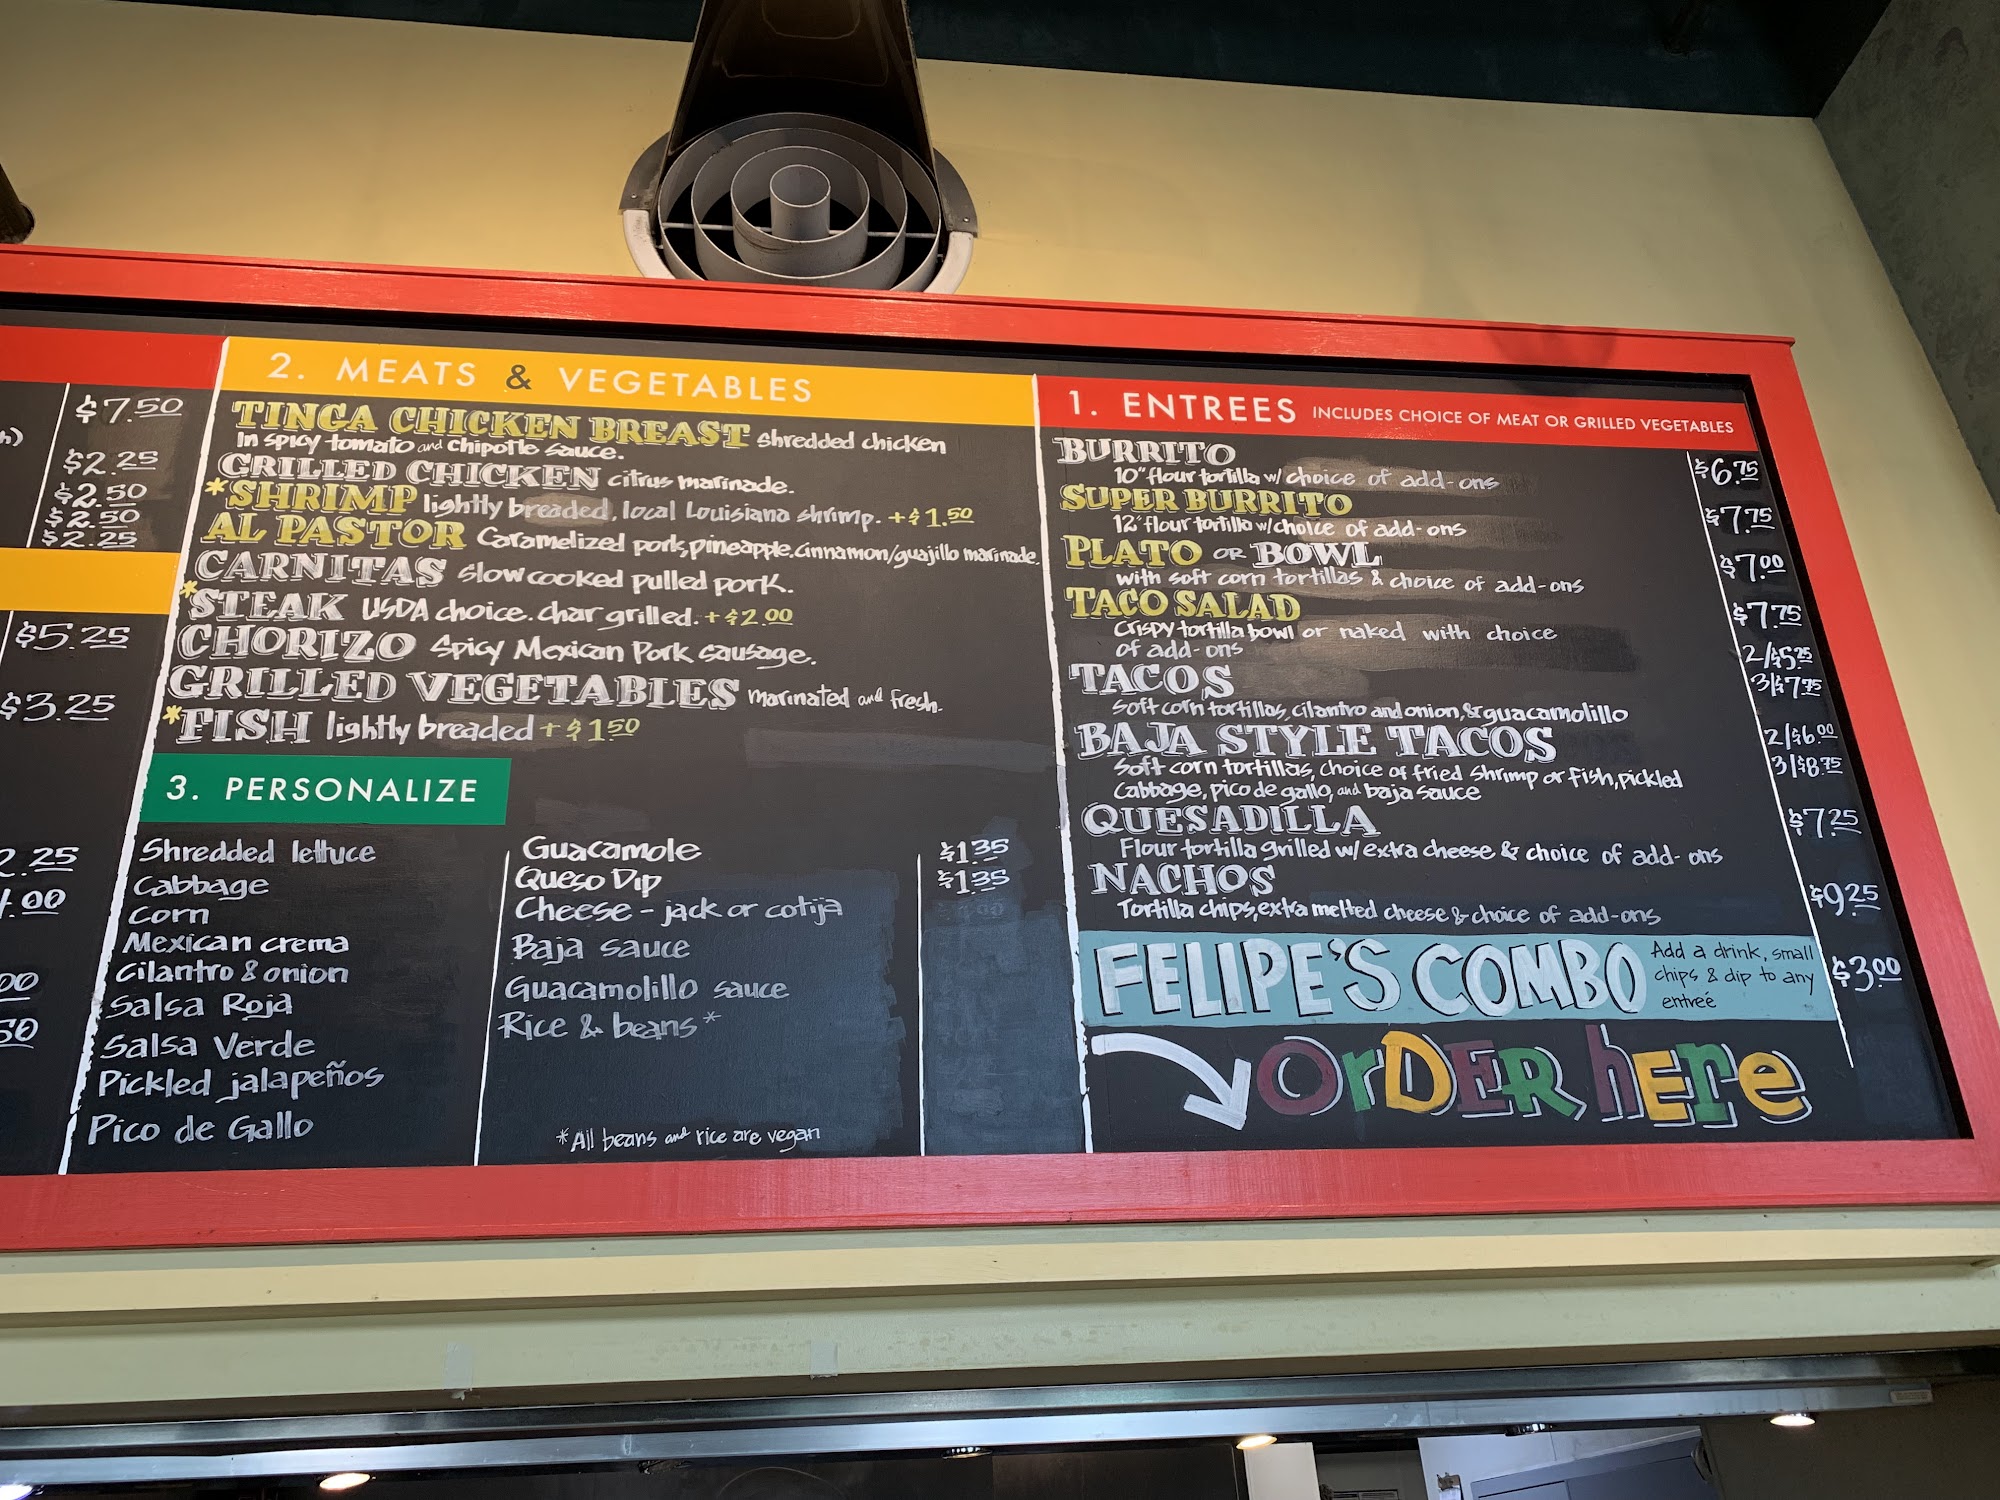 $7.50
$2.25
$2.50
$2.50
$2.25
$5.25
$3.25
2. MEATS & VEGETABLES
TINGA CHICKEN BREAST shredded chicken
in spicy tomato and chipotle sauce.
GRILLED CHICKEN citrus marinade.
*SHRIMP lightly breaded, local Louisiana shrimp. +$1.50
AL PASTOR Caramelized pork, pineapple, cinnamon/guajillo marinade.
CARNITAS slow cooked pulled pork.
*STEAK USDA choice. char grilled. +$2.00
CHORIZO Spicy Mexican Pork sausage.
GRILLED VEGETABLES marinated and fresh.
*FISH lightly breaded +$1.50
3. PERSONALIZE
Shredded lettuce
Cabbage
Corn
Mexican crema
Cilantro & onion
Salsa Roja
Salsa Verde
Pickled jalapeños
Pico de Gallo
Guacamole $1.35
Queso Dip $1.35
Cheese - jack or cotija
Baja sauce
Guacamolillo sauce
Rice & beans*
*All beans and rice are vegan
1. ENTREES INCLUDES CHOICE OF MEAT OR GRILLED VEGETABLES
BURRITO $6.75
10" flour tortilla w/ choice of add-ons
SUPER BURRITO $7.75
12" flour tortilla w/choice of add-ons
PLATO OR BOWL $7.00
with soft corn tortillas & choice of add-ons
TACO SALAD $7.75
Crispy tortilla bowl or naked with choice
of add-ons
TACOS 2/$5.25
3/$7.75
Soft corn tortillas, cilantro and onion, & guacamolillo
BAJA STYLE TACOS 2/$6.00
3/$8.75
Soft corn tortillas, choice of fried shrimp or fish, pickled
cabbage, pico de gallo, and baja sauce
QUESADILLA $7.25
Flour tortilla grilled w/extra cheese & choice of add-ons
NACHOS $9.25
Tortilla chips, extra melted cheese & choice of add-ons
FELIPE'S COMBO Add a drink, small
chips & dip to any
entreé
$3.00
OrDER hEre